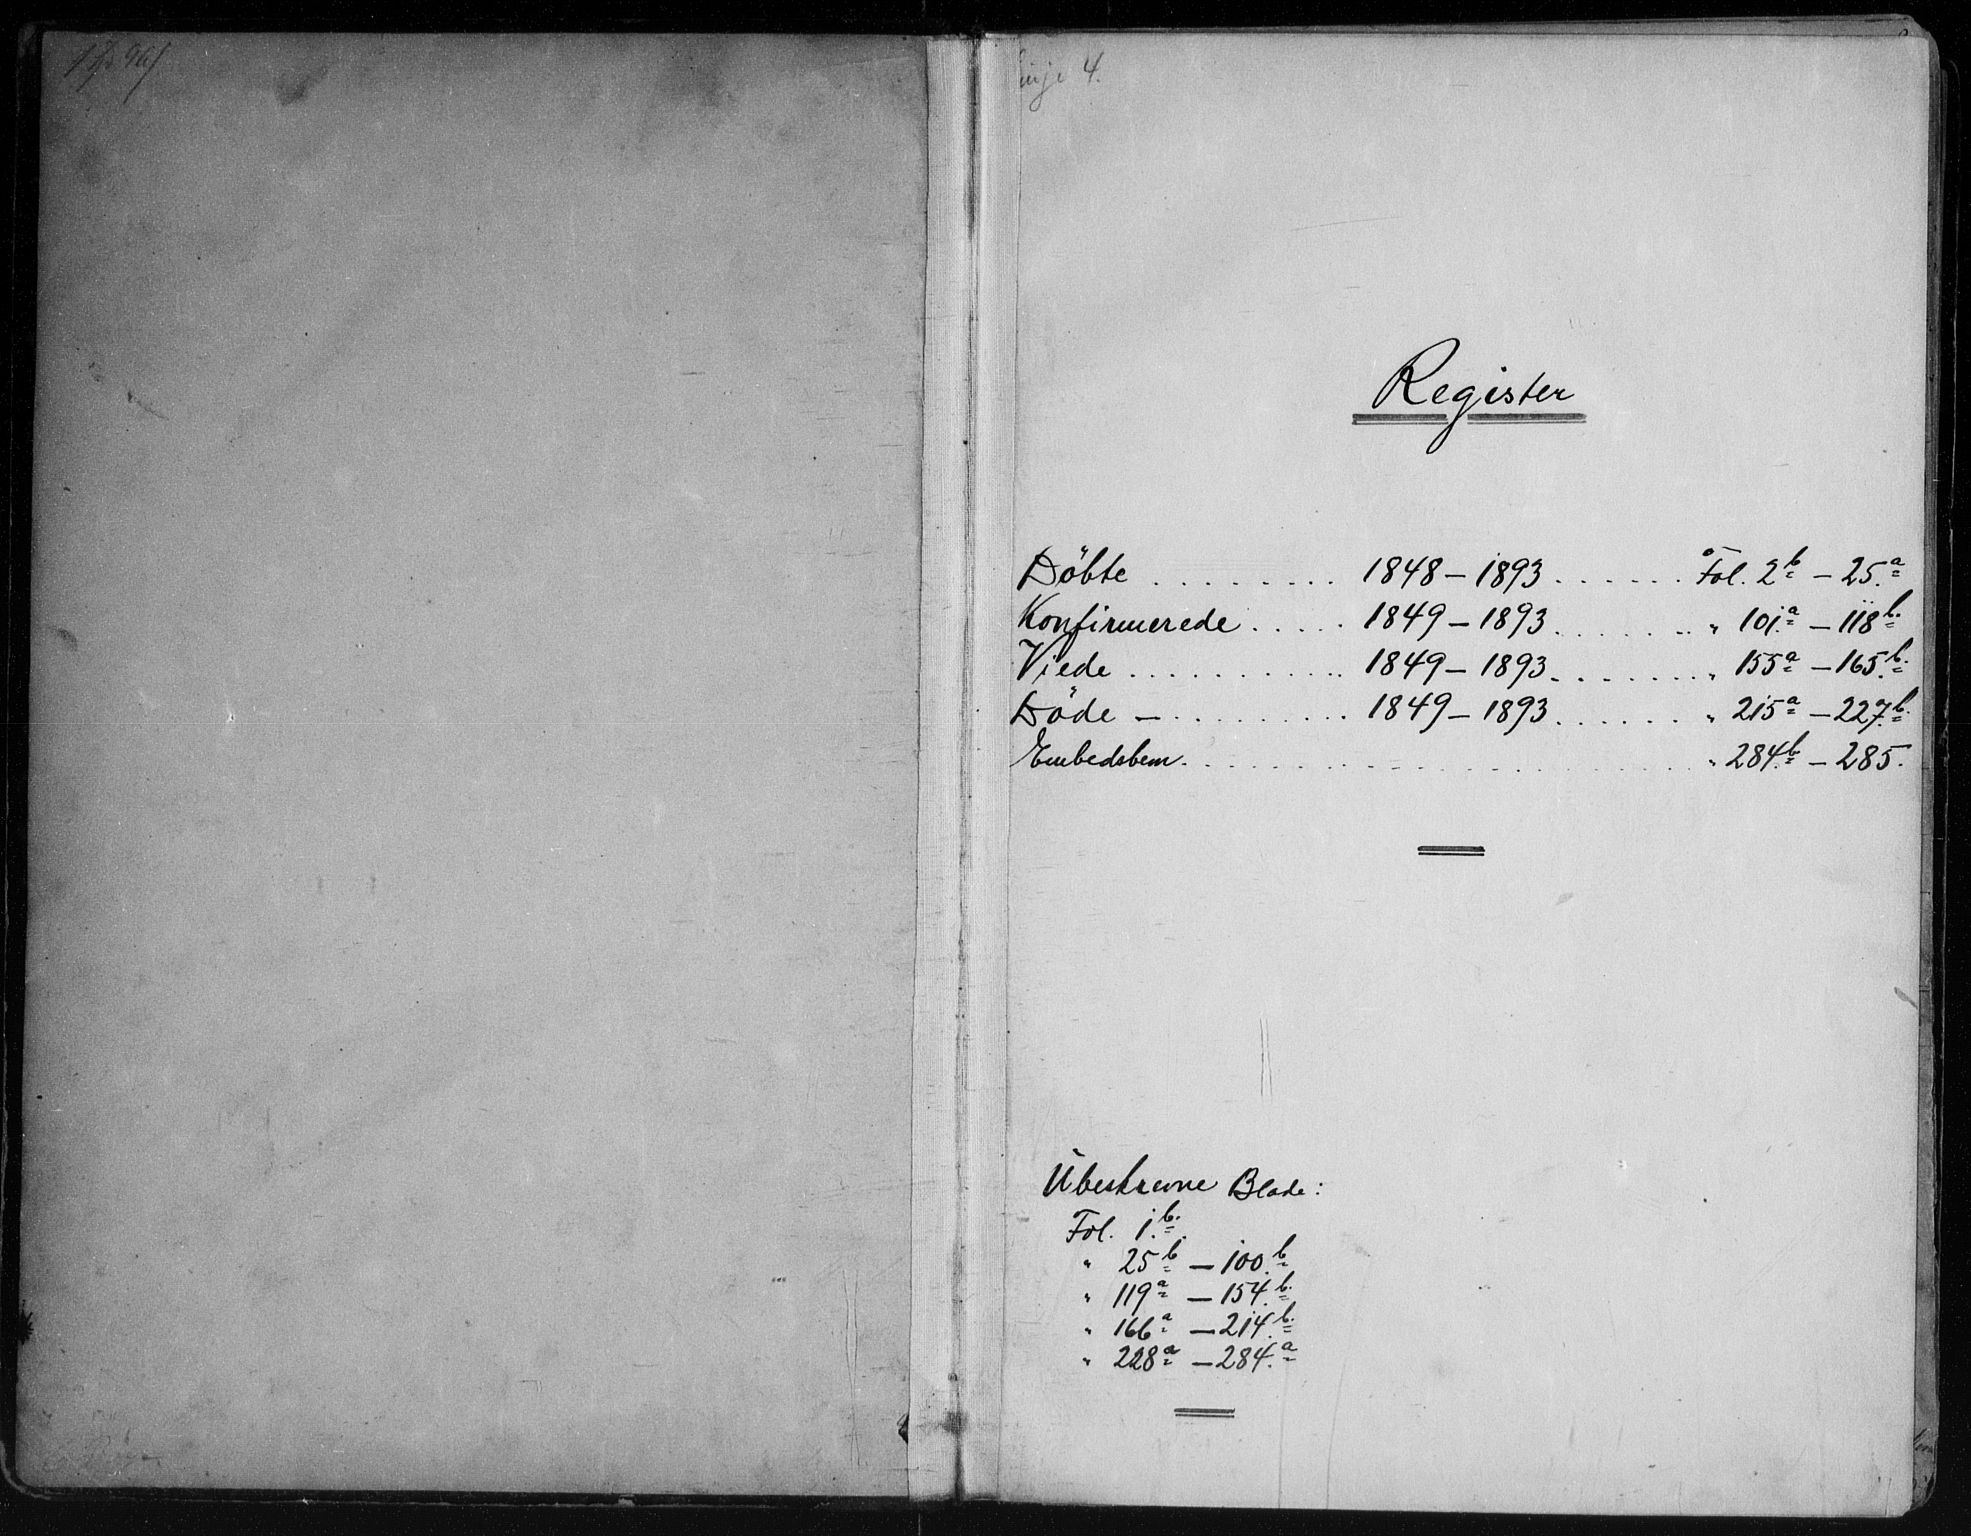 4.
Register
Döbte . . . . . . . . . 1848 – 1893 . . . . . . Fol. 2b – 25.a
Konfirmerede . . . . . 1849 – 1893 . . . . . . . " 101.a – 118b.
Viede . . . . . . . . . . . 1849 – 1893 . . . . . . . . " 155a – 165.b.
Döde – . . . . . . . . . 1849 – 1893 . . . . . . " 215a – 227.b.
Embedsbem. . . . . . . . . . . . . . . . . . " 284.b – 285.
Ubeskrevne Blade:
Fol. 1.b.
" 25b – 100.b
" 119a – 154.b.
" 166a – 214.b.
" 228a – 284.a